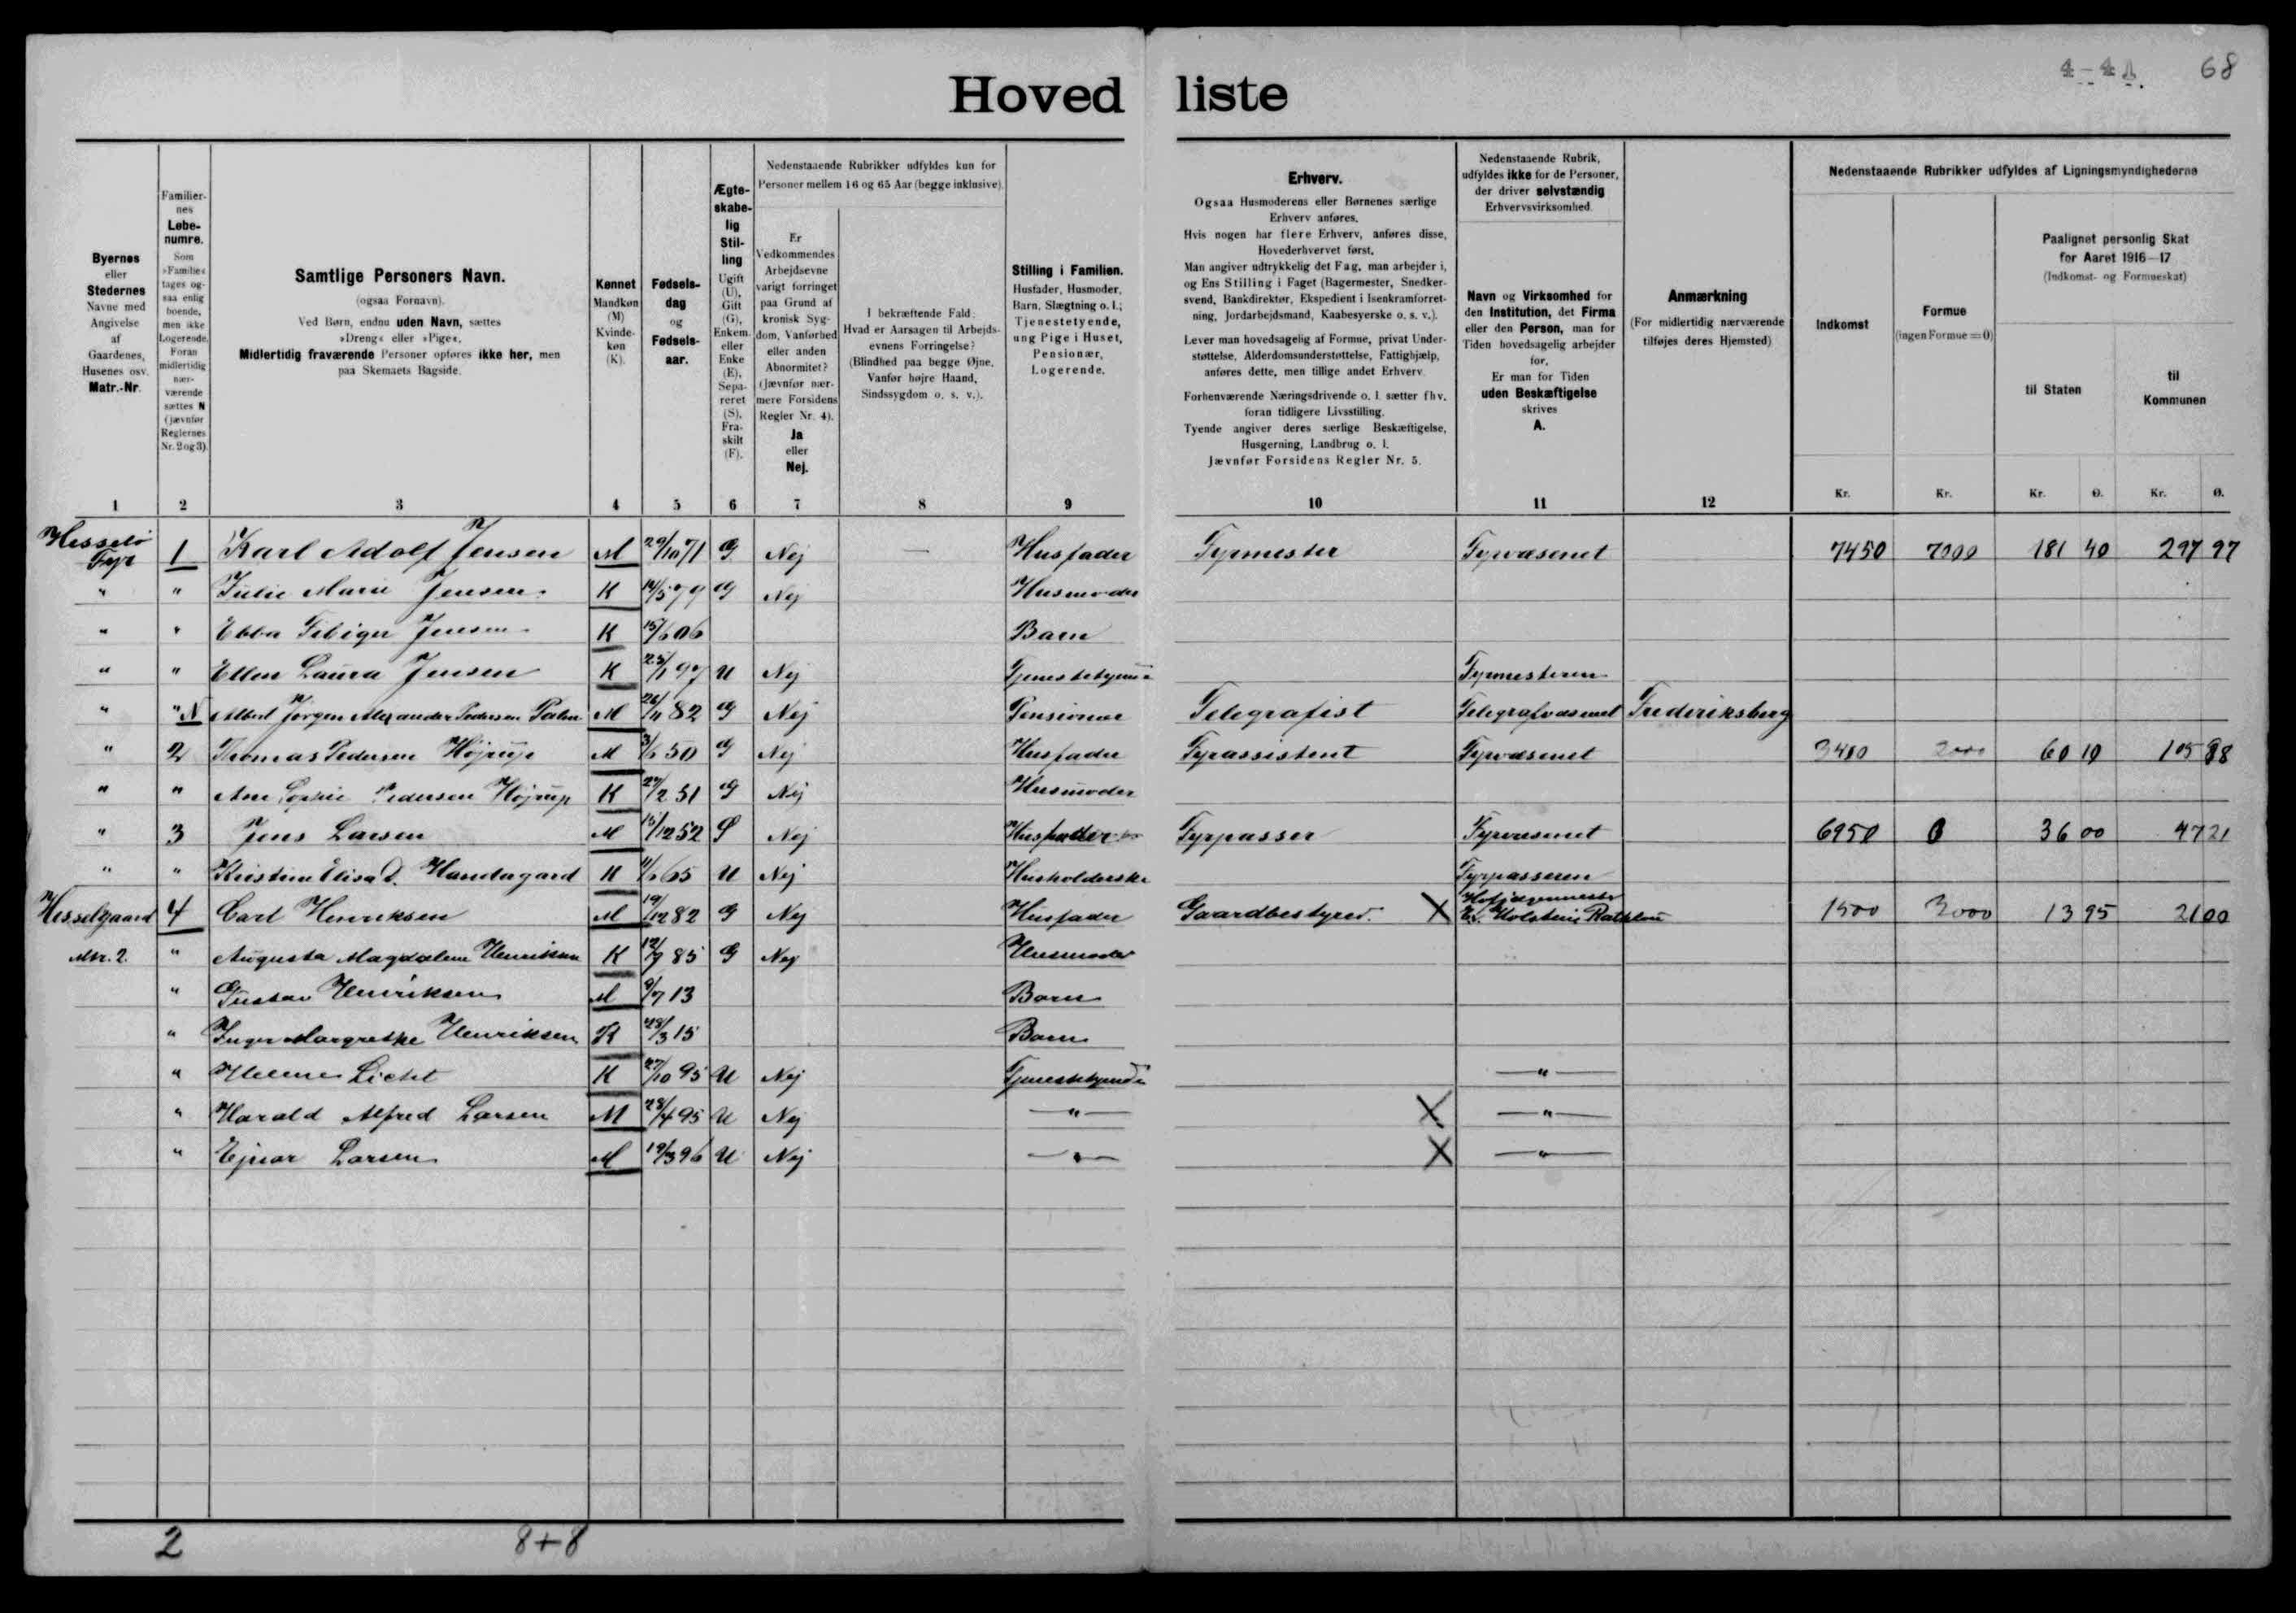 4-4
68
Hovedliste
Byernes eller Stedernes Navne med Angivelse af Gaardenes, Husenes osv. Matr.-Nr.
Familiernes Løbenumre. Som »Familie« tages ogsaa enlig boende, men ikke Logerende. Foran midlertidig nærværende sættes N (jævnfør Reglernes Nr. 2 og 3).
Samtlige Personers Navn. (ogsaa Fornavn). Ved Børn, endnu uden Navn, sættes »Dreng« eller »Pige«. Midlertidig fraværende Personer opføres ikke her, men paa Skemaets Bagside.
Kønnet Mandkøn (M) Kvindekøn (K).
Fødselsdag og Fødselsaar.
Ægteskabelig Stilling Ugift (U), Gift (G), Enkem. eller Enke (E), Separeret (S), Fraskilt (F).
Nedenstaaende Rubrikker udfyldes kun for Personer mellem 16 og 65 Aar (begge inklusive).
Er Vedkommendes Arbejdsevne varigt forringet paa Grund af kronisk Sygdom, Vanførhed eller anden Abnormitet? (Jævnfør nærmere Forsidens Regler Nr. 4). Ja eller Nej.
I bekræftende Fald: Hvad er Aarsagen til Arbejdsevnens Forringelse? (Blindhed paa begge Øjne, Vanfør højre Haand, Sindssygdom o. s. v.).
Stilling i Familien. Husfader, Husmoder, Barn, Slægtning o. l.; Tjenestetyende, ung Pige i Huset, Pensionær, Logerende.
Erhverv. Ogsaa Husmoderens eller Børnenes særlige Erhverv anføres. Hvis nogen har flere Erhverv, anføres disse, Hovederhvervet først. Man angiver udtrykkelig det Fag, man arbejder i, og Ens Stilling i Faget (Bagermester, Snedkersvend, Bankdirektør, Ekspedient i Isenkramforretning, Jordarbejdsmand, Kaabesyerske o. s. v.). Lever man hovedsagelig af Formue, privat Understøttelse, Alderdomsunderstøttelse, Fattighjælp, anføres dette, men tillige andet Erhverv. Forhenværende Næringsdrivende o. l. sætter fhv. foran tidligere Livsstilling. Tyende angiver deres særlige Beskæftigelse, Husgerning, Landbrug o. l. Jævnfør Forsidens Regler Nr. 5.
Nedenstaaende Rubrik, udfyldes ikke for de Personer, der driver selvstændig Erhvervsvirksomhed.
Navn og Virksomhed for den Institution, det Firma eller den Person, man for Tiden hovedsagelig arbejder for. Er man for Tiden uden Beskæftigelse skrives A.
Anmærkning (For midlertidig nærværende tilføjes deres Hjemsted)
Nedenstaaende Rubrikker udfyldes af Ligningsmyndighederne
Indkomst
Formue (ingen Formue = 0)
Paalignet personlig Skat for Aaret 1916-17 (Indkomst- og Formueskat)
til Staten
til Kommunen
1 2 3 4 5 6 7 8 9 10 11 12 Kr. Kr. Kr. Ø. Kr. Ø.
Hesselø Fyr 1 Karl Adolf Jensen M 29/10 71 G Nej — Husfader Fyrmester Fyrvæsenet 7450 7000 181 40 297 97
" " Julie Marie Jensen K 14/5 79 G Nej Husmoder
" " Ebba Febiger Jensen K 15/6 06 Barn
" " Ellen Laura Jensen K 25/1 97 U Nej Tjenestetyende Fyrmesteren
" " N Albert Jørgen Alexander Pedersen M 26/11 82 G Nej Pensionær Telegrafist Telegrafvæsenet Frederiksberg
" 2 Thomas Pedersen Højrup M 3/6 50 G Nej Husfader Fyrassistent Fyrvæsenet 2000 60 10
" " Ane Sophie Pedersen Højrup K 27/2 51 G Nej Husmoder
" 3 Jens Larsen M 15/12 52 S Nej Husfader Fyrpasser Fyrvæsenet 6950 0 36 00 47 21
" " Kristine Elisa D. K 11/6 65 U Nej Husholderske Fyrpasseren
Hesselgaard 4 Carl Henriksen M 19/12 82 G Nej Husfader Gaardbestyrer X Hofjægermester Holstein Rathlou 1500 3000 13 95 21 00
Mtr. 2. " Augusta Magdalene Henriksen K 12/7 85 G Nej Husmoder
" Gustav Henriksen M 9/7 13 Barn
" Inger Margrethe Henriksen K 28/3 15 Barn
" Helene Licht K 27/10 95 U Nej Tjenestetyende — " —
" Harald Alfred Larsen M 28/4 95 U Nej — " — X — " —
" Ejnar Larsen M 19/3 96 U Nej — " — X — " —
2 8+8